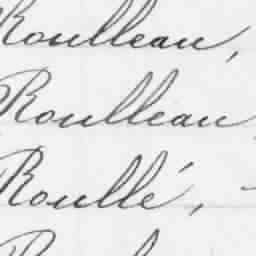 Roulleau,
Roulleau
Roullé, -